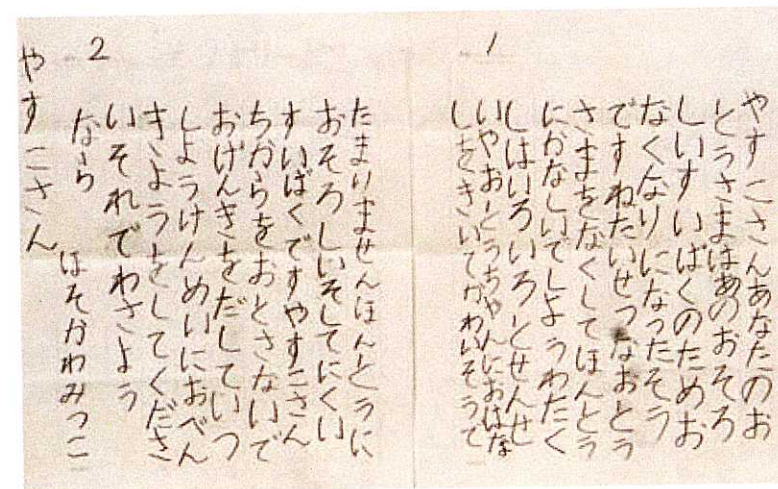 1
やすこさんあなたのお
とうさまはあのおそろ
しいすいばくのためお
なくなりになったそう
ですねたいせつなおとう
さまをなくしてほんとう
にかなしいでしようわたく
しはいろいろとせんせ
いやおとうちやんにおはな
しをきいてかわいそうで
2
たまりませんほんとうに
おそろしいそしてにくい
すいばくですやすこさん
ちからをおとさないで
おげんきをだしていつ
しようけんめいにおべん
きようをしてくださ
いそれでわさよう
なら
ほそかわみつこ
やすこさん